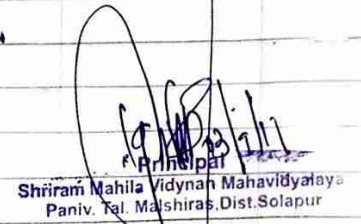 Principal
Shriram Mahila Vidynan Mahavidyalaya
Paniv. Tal. Malshiras,Dist.Solapur